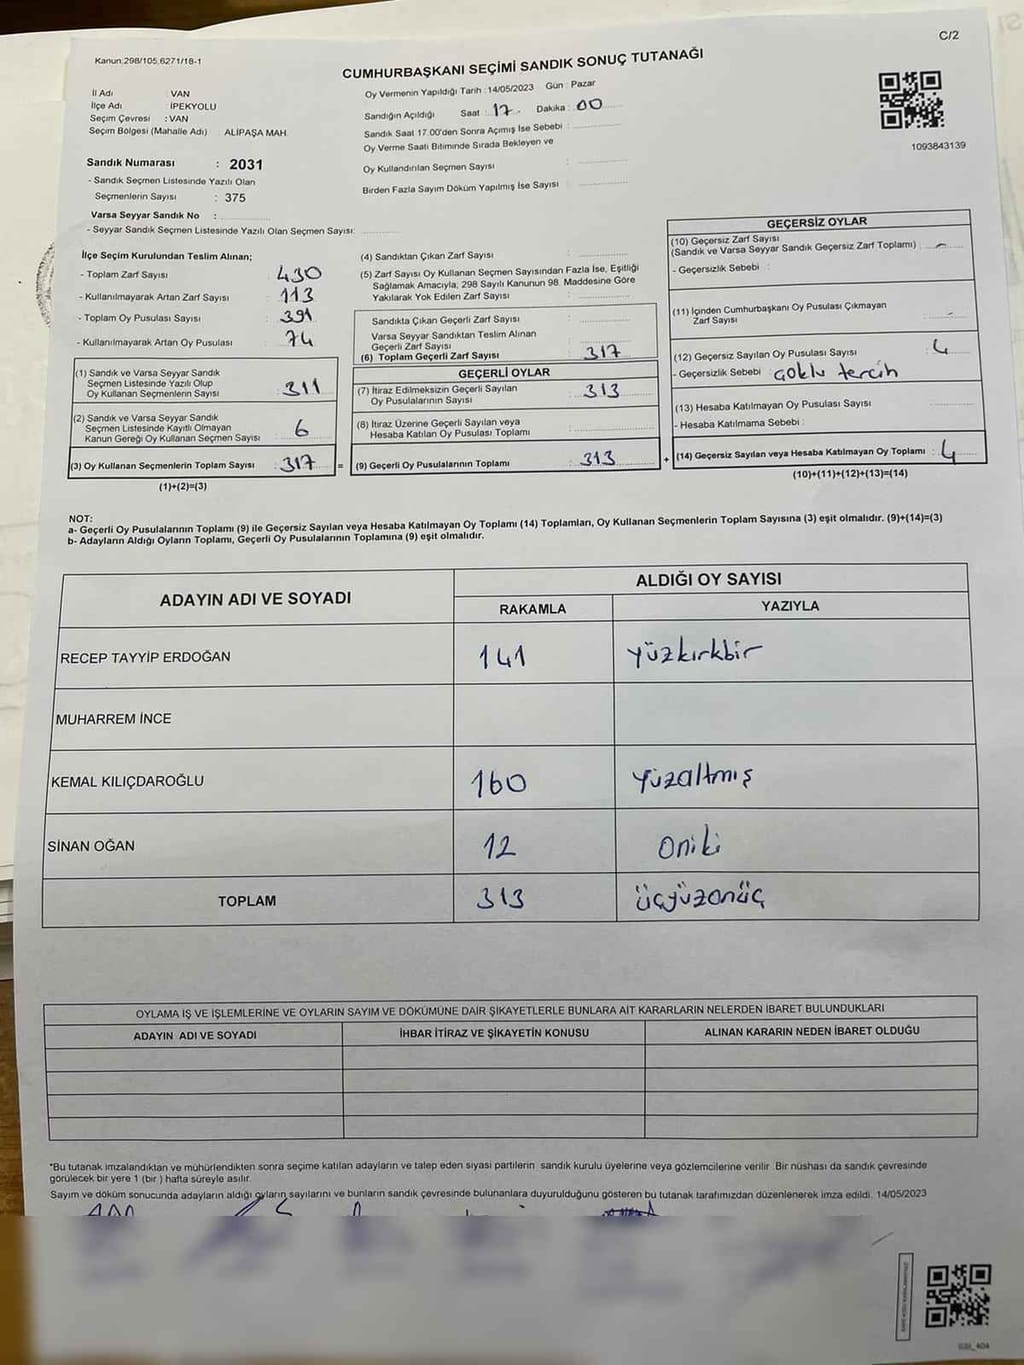 C/2
Kanun.298/105,6271/18-1
CUMHURBAŞKANI SEÇİMİ SANDIK SONUÇ TUTANAĞI
İl Adı : VAN
İlçe Adı : İPEKYOLU
Seçim Çevresi : VAN
Seçim Bölgesi (Mahalle Adı) : ALİPAŞA MAH.
Sandık Numarası : 2031
- Sandık Seçmen Listesinde Yazılı Olan
Seçmenlerin Sayısı : 375
Varsa Seyyar Sandık No :
- Seyyar Sandık Seçmen Listesinde Yazılı Olan Seçmen Sayısı:
Oy Vermenin Yapıldığı Tarih : 14/05/2023 Gün : Pazar
Sandığın Açıldığı Saat : 17. Dakika : 00
Sandık Saat 17.00'den Sonra Açımış İse Sebebi :
Oy Verme Saati Bitiminde Sırada Bekleyen ve
Oy Kullandırılan Seçmen Sayısı :
Birden Fazla Sayım Döküm Yapılmış İse Sayısı :
1093843139
İlçe Seçim Kurulundan Teslim Alınan;
- Toplam Zarf Sayısı : 430
- Kullanılmayarak Artan Zarf Sayısı : 113
- Toplam Oy Pusulası Sayısı : 391
- Kullanılmayarak Artan Oy Pusulası : 74
(1) Sandık ve Varsa Seyyar Sandık
Seçmen Listesinde Yazılı Olup
Oy Kullanan Seçmenlerin Sayısı : 311
(2) Sandık ve Varsa Seyyar Sandık
Seçmen Listesinde Kayıtlı Olmayan
Kanun Gereği Oy Kullanan Seçmen Sayısı : 6
(3) Oy Kullanan Seçmenlerin Toplam Sayısı : 317
(1)+(2)=(3)
(4) Sandıktan Çıkan Zarf Sayısı :
(5) Zarf Sayısı Oy Kullanan Seçmen Sayısından Fazla İse, Eşitliği
Sağlamak Amacıyla; 298 Sayılı Kanunun 98. Maddesine Göre
Yakılarak Yok Edilen Zarf Sayısı :
Sandıkta Çıkan Geçerli Zarf Sayısı :
Varsa Seyyar Sandıktan Teslim Alınan
Geçerli Zarf Sayısı :
(6) Toplam Geçerli Zarf Sayısı : 317
GEÇERLİ OYLAR
(7) İtiraz Edilmeksizin Geçerli Sayılan
Oy Pusulalarının Sayısı : 313
(8) İtiraz Üzerine Geçerli Sayılan veya
Hesaba Katılan Oy Pusulası Toplamı :
= (9) Geçerli Oy Pusulalarının Toplamı : 313
GEÇERSİZ OYLAR
(10) Geçersiz Zarf Sayısı
(Sandık ve Varsa Seyyar Sandık Geçersiz Zarf Toplamı) : -
- Geçersizlik Sebebi :
(11) İçinden Cumhurbaşkanı Oy Pusulası Çıkmayan
Zarf Sayısı : -
(12) Geçersiz Sayılan Oy Pusulası Sayısı : 4
- Geçersizlik Sebebi : çoklu tercih
(13) Hesaba Katılmayan Oy Pusulası Sayısı :
- Hesaba Katılmama Sebebi :
+ (14) Geçersiz Sayılan veya Hesaba Katılmayan Oy Toplamı : 4
(10)+(11)+(12)+(13)=(14)
NOT:
a- Geçerli Oy Pusulalarının Toplamı (9) ile Geçersiz Sayılan veya Hesaba Katılmayan Oy Toplamı (14) Toplamları, Oy Kullanan Seçmenlerin Toplam Sayısına (3) eşit olmalıdır. (9)+(14)=(3)
b- Adayların Aldığı Oyların Toplamı, Geçerli Oy Pusulalarının Toplamına (9) eşit olmalıdır.
ADAYIN ADI VE SOYADI
ALDIĞI OY SAYISI
RAKAMLA YAZIYLA
RECEP TAYYİP ERDOĞAN 141 yüzkırkbir
MUHARREM İNCE
KEMAL KILIÇDAROĞLU 160 yüzaltmış
SİNAN OĞAN 12 oniki
TOPLAM 313 üçyüzonüç
OYLAMA İŞ VE İŞLEMLERİNE VE OYLARIN SAYIM VE DÖKÜMÜNE DAİR ŞİKAYETLERLE BUNLARA AİT KARARLARIN NELERDEN İBARET BULUNDUKLARI
ADAYIN ADI VE SOYADI İHBAR İTİRAZ VE ŞİKAYETİN KONUSU ALINAN KARARIN NEDEN İBARET OLDUĞU
*Bu tutanak imzalandıktan ve mühürlendikten sonra seçime katılan adayların ve talep eden siyasi partilerin sandık kurulu üyelerine veya gözlemcilerine verilir. Bir nüshası da sandık çevresinde
görülecek bir yere 1 (bir ) hafta süreyle asılır.
Sayım ve döküm sonucunda adayların aldığı oyların sayılarını ve bunların sandık çevresinde bulunanlara duyurulduğunu gösteren bu tutanak tarafımızdan düzenlenerek imza edildi. 14/05/2023